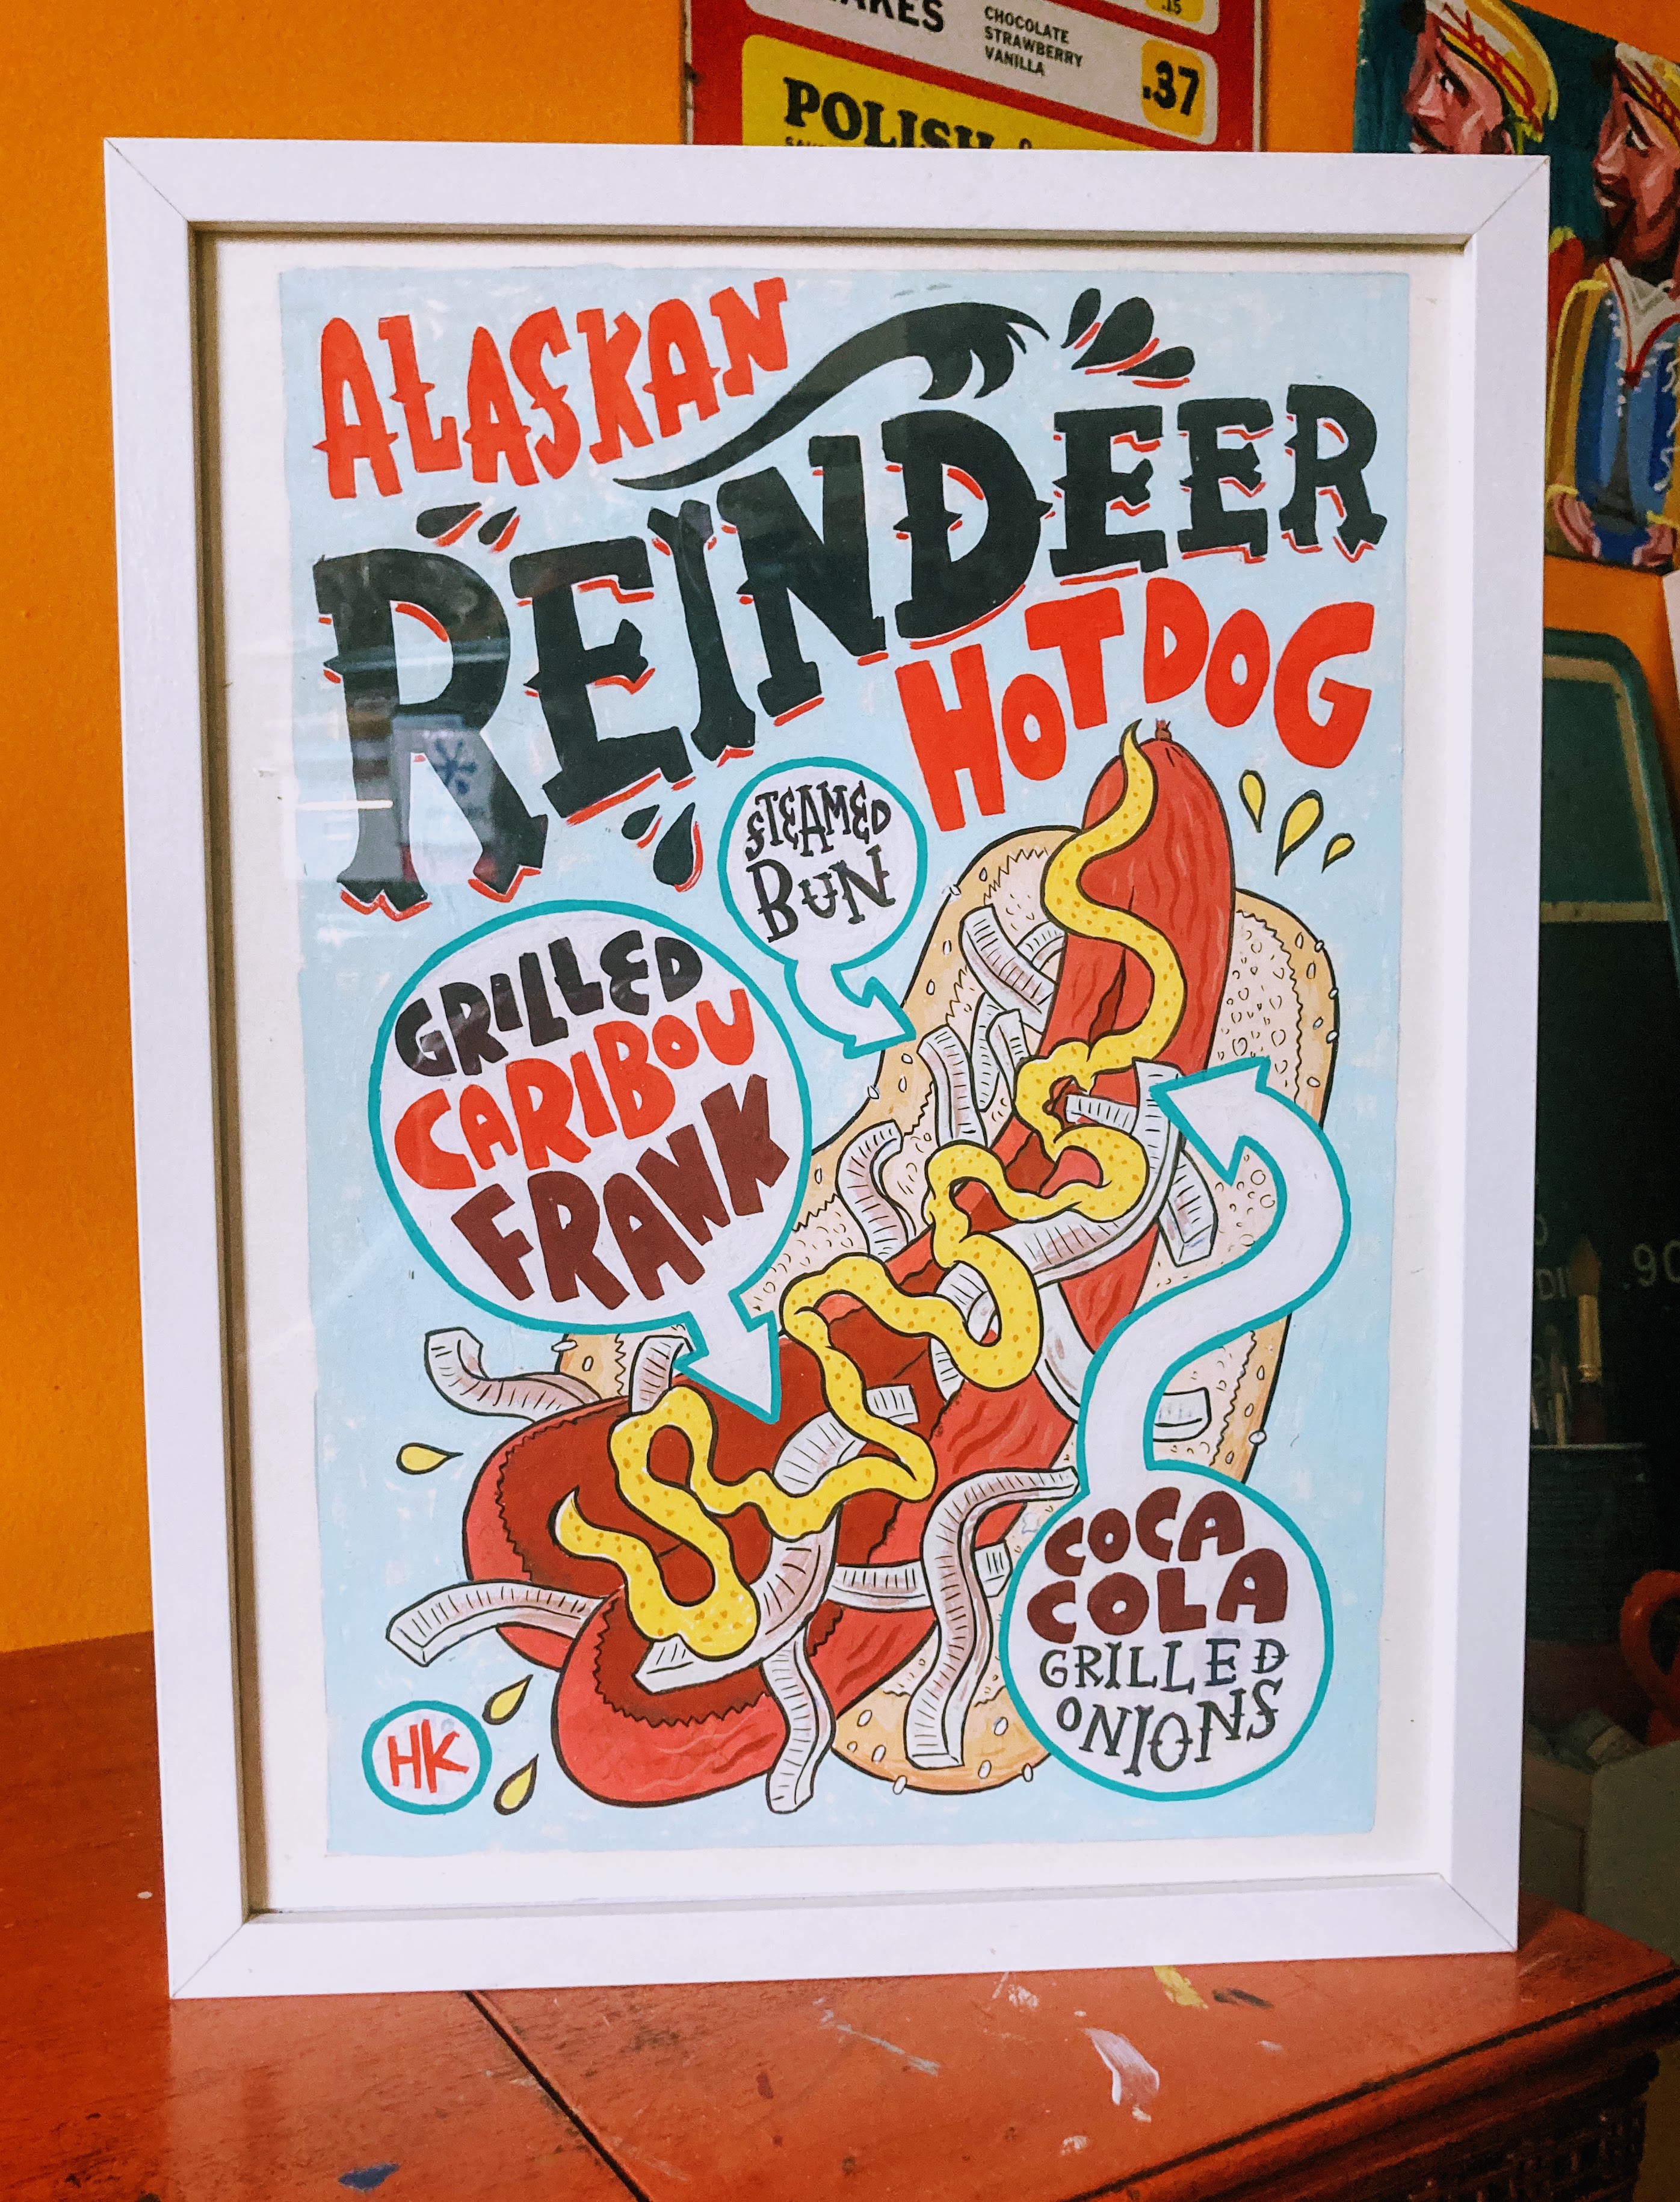 CHOCOLATE
STRAWBERRY
VANILLA
.15
.37
POLISH
ALASKAN
REINDEER
HOT DOG
STEAMED
BUN
GRILLED
CARIBOU
FRANK
COCA
COLA
GRILLED
ONIONS
HK